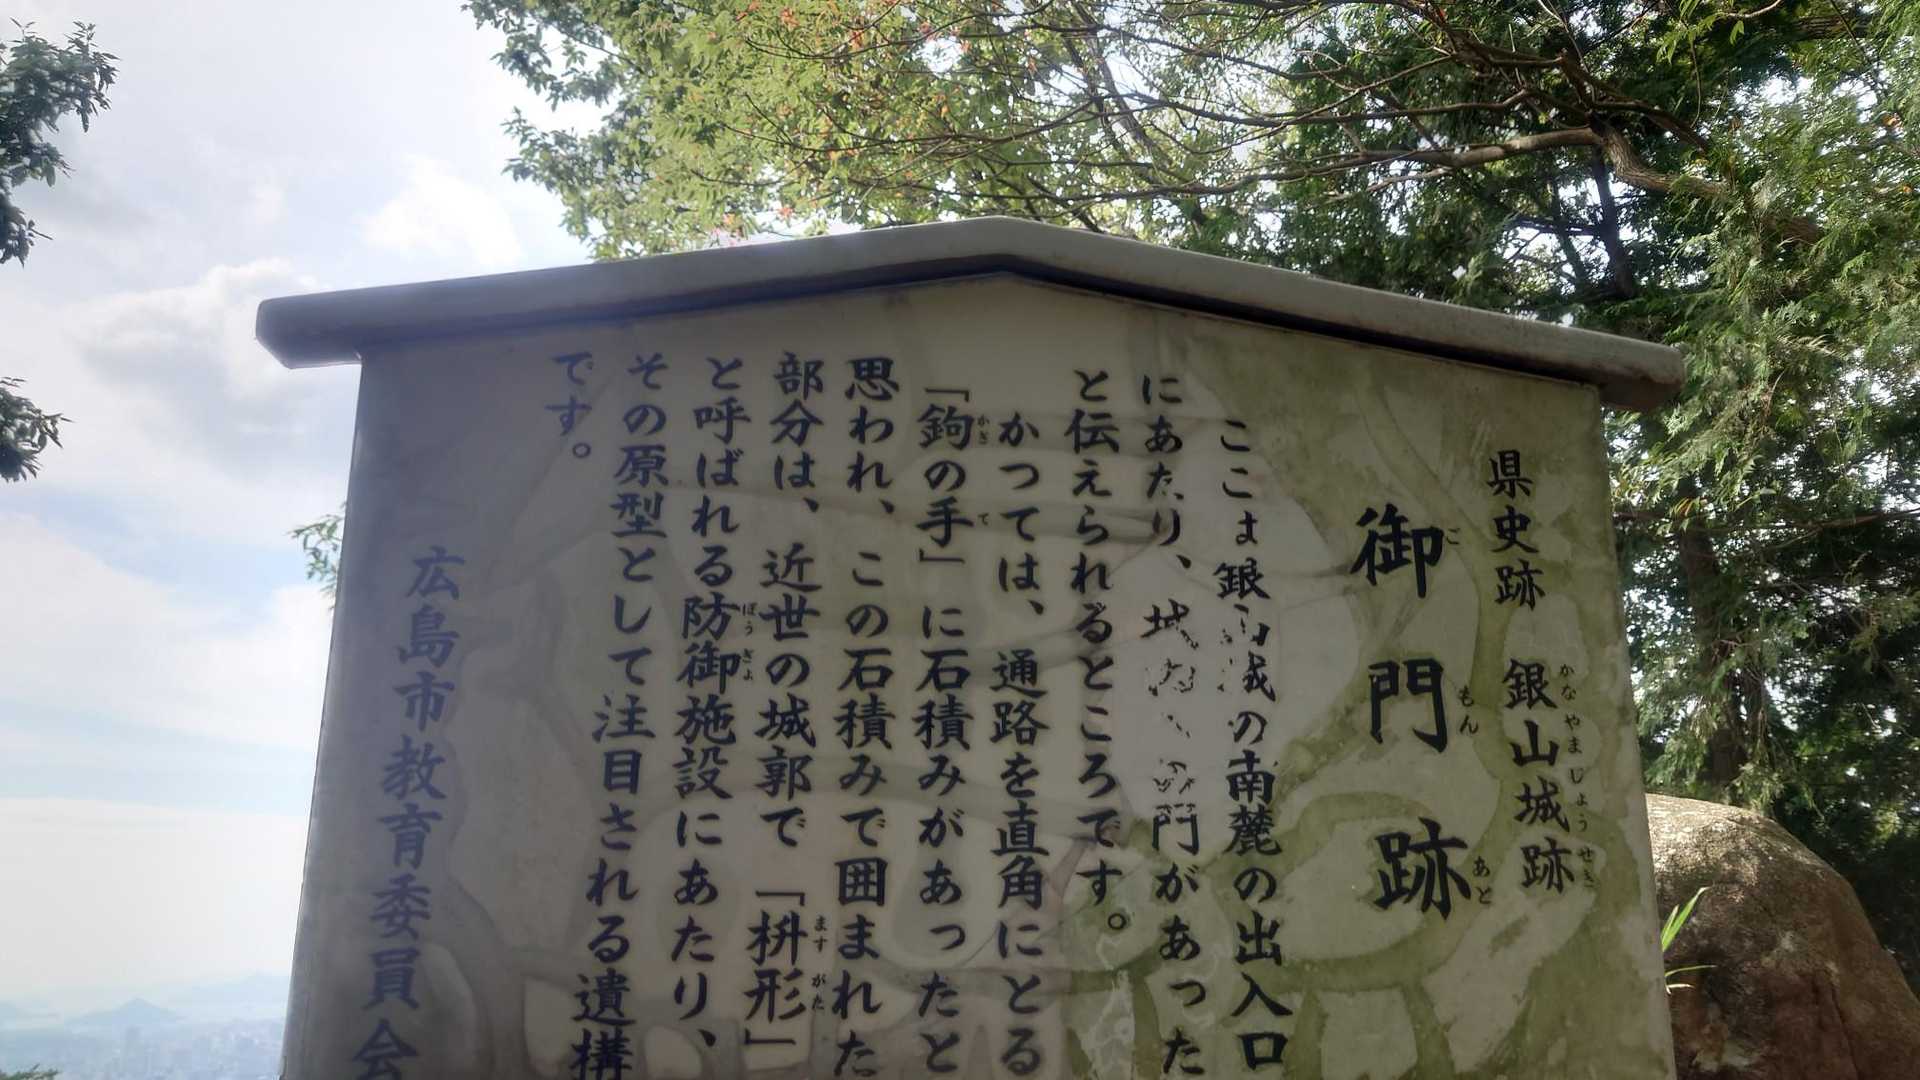 県史跡 銀山城跡
かなやまじょうせき
御門跡
ごもんあと
ここは銀山城の南麓の出入口
にあたり、城 門があった
と伝えられるところです。
かつては、通路を直角にとる
「鉤の手」に石積みがあったと
かぎ て
思われ、この石積みで囲まれた
部分は、近世の城郭で「枡形」
ますがた
と呼ばれる防御施設にあたり、
ぼうぎょ
その原型として注目される遺構
です。
広島市教育委員会